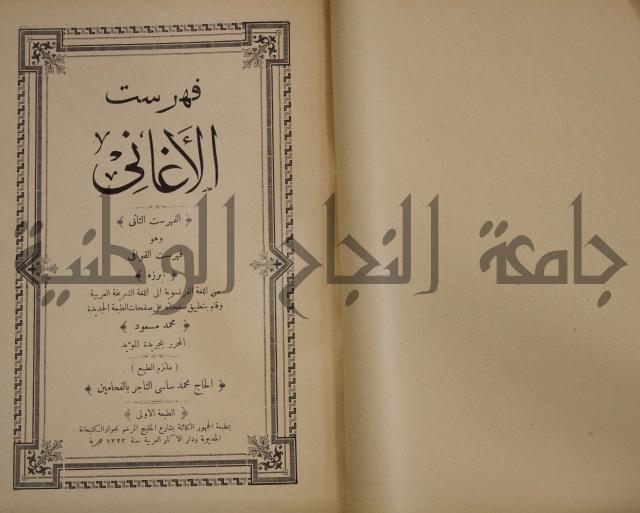 فهرست
الأغاني
﴿ الفهرست الثاني ﴾
وهو
فهرست القوافي
﴿ ابرزه ﴾
من اللغة الفرنسوية الى اللغة الشريفة العربية
وقام بتطبيق صفحاته على صفحات الطبعة الجديدة
﴿ محمد مسعود ﴾
المحرر بجريدة المؤيد
( ملتزم الطبع )
﴿ الحاج محمد ساسى التاجر بالفحامين ﴾
﴿ الطبعة الاولى ﴾
بمطبعة الجمهور الكائنة بشارع الخليج المرخم بجوار الكتبخانة
الخديوية ودار الآثار العربية سنة ١٣٢٣ هجرية
جامعة النجاح الوطنية